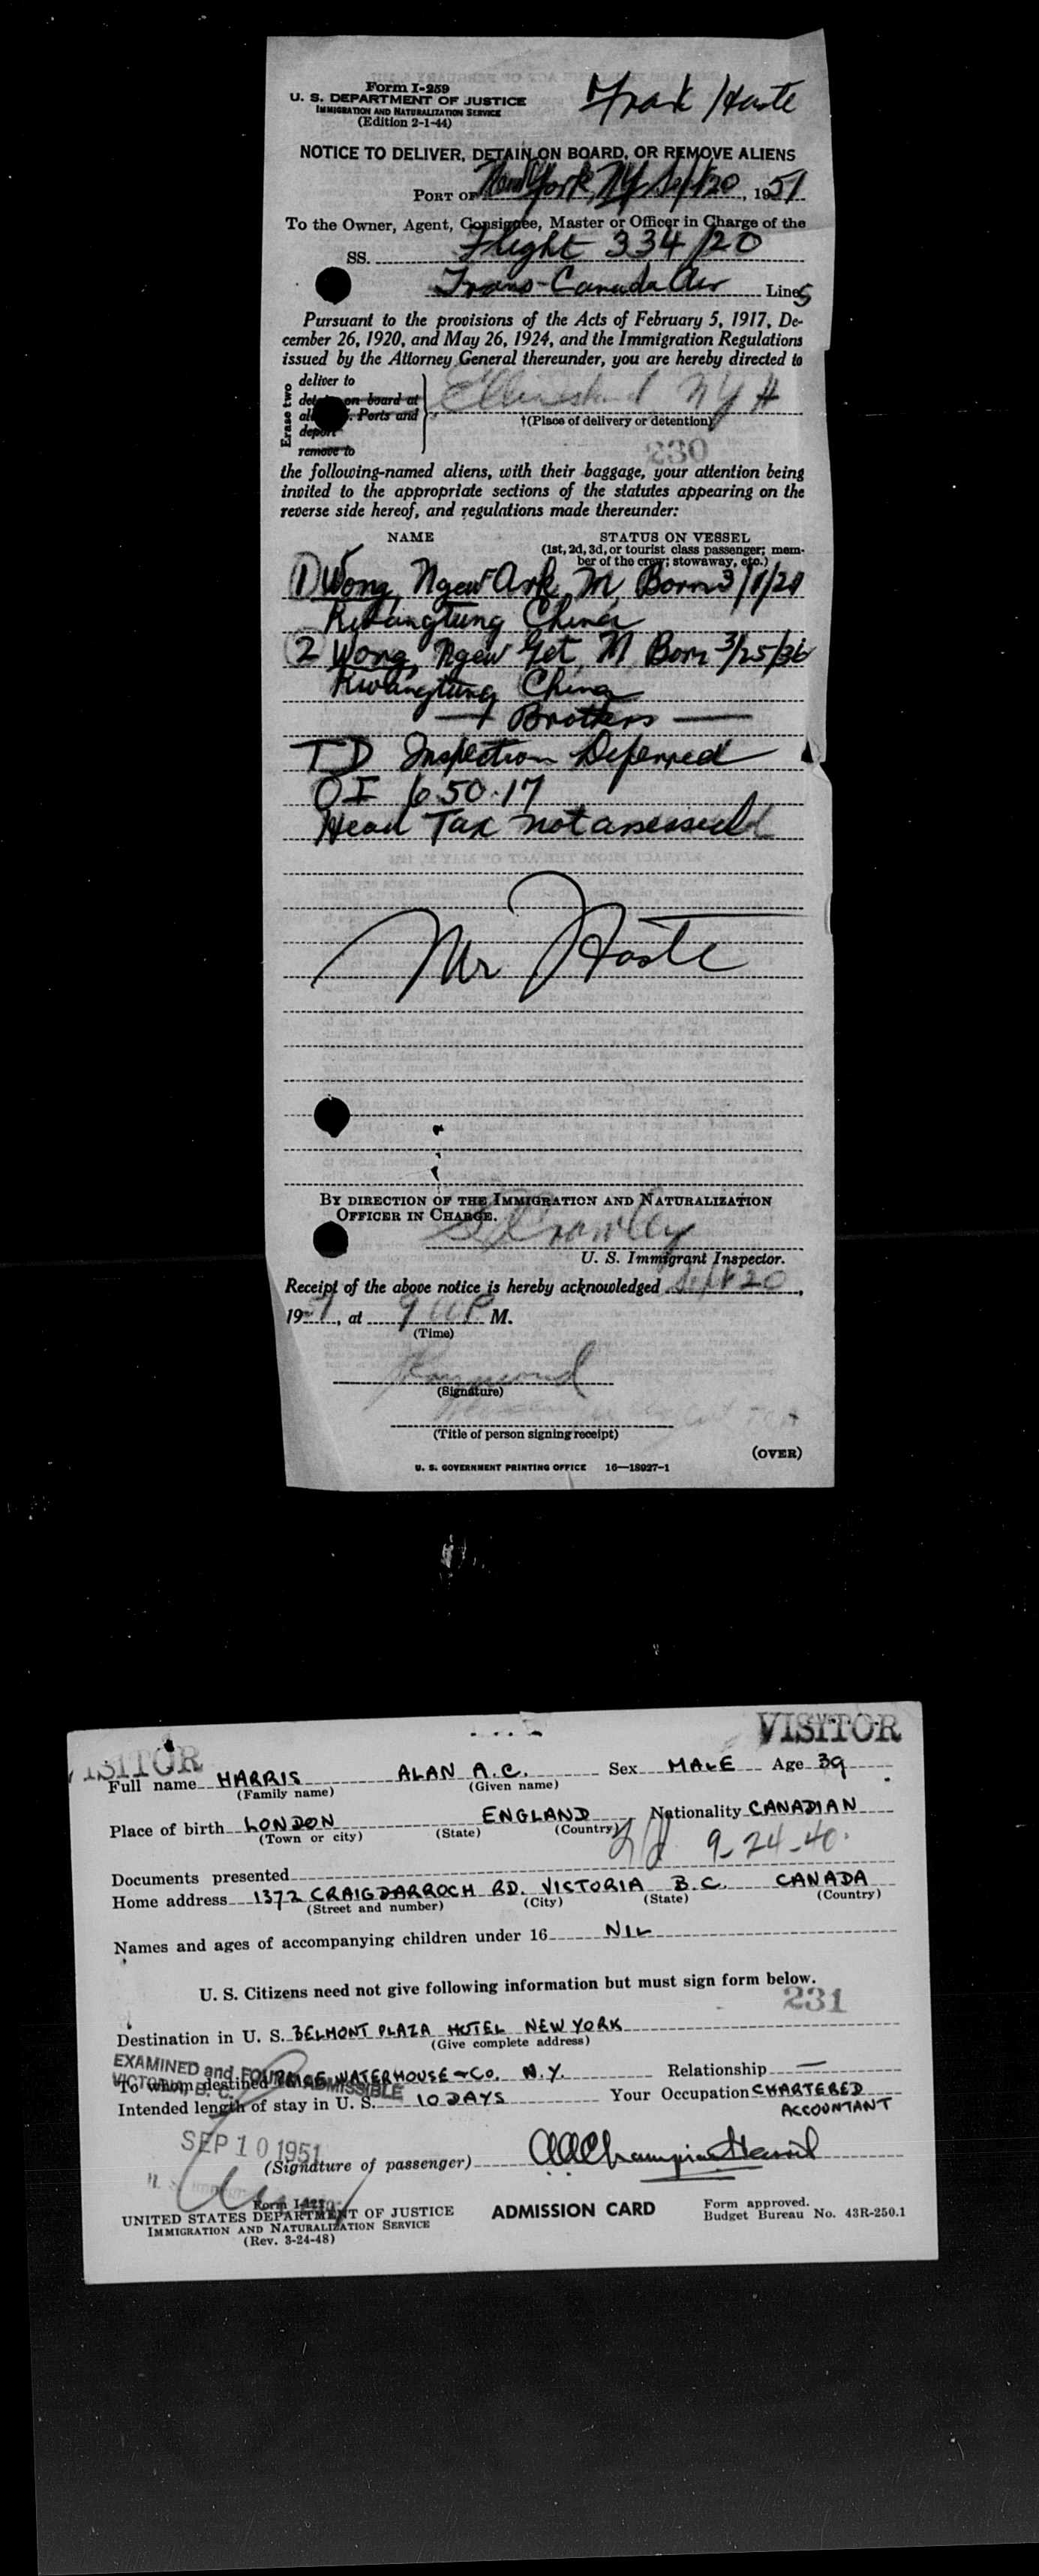 Form I-259
U. S. DEPARTMENT OF JUSTICE
IMMIGRATION AND NATURALIZATION SERVICE
(Edition 2-1-44)
Frank Haste
NOTICE TO DELIVER, DETAIN ON BOARD, OR REMOVE ALIENS
PORT OF New York, NY Sept 20, 1951
To the Owner, Agent, Consignee, Master or Officer in Charge of the
SS. Flight 334/20
Trans-Canada Air Lines
Pursuant to the provisions of the Acts of February 5, 1917, De-
cember 26, 1920, and May 26, 1924, and the Immigration Regulations
issued by the Attorney General thereunder, you are hereby directed to
Erase two
deliver to
on board at
Ports and
deport
remove to
NY H
†(Place of delivery or detention)
230
the following-named aliens, with their baggage, your attention being
invited to the appropriate sections of the statutes appearing on the
reverse side hereof, and regulations made thereunder:
NAME STATUS ON VESSEL
(1st, 2d, 3d, or tourist class passenger; mem-
ber of the crew; stowaway, etc.)
1 Wong, Ngew Ark M Born 3/1/20
Kwangtung China
2 Wong, Ngew Get M Born 3/25/36
Kwangtung China
— Brothers —
TD Inspection Deferred
OI 6 50.17
Head Tax not assessed
Mr Haste
BY DIRECTION OF THE IMMIGRATION AND NATURALIZATION
OFFICER IN CHARGE.
Crowley
U. S. Immigrant Inspector.
Receipt of the above notice is hereby acknowledged Sept 20,
1951, at 9 00 P M.
(Time)
Raymond
(Signature)
(Title of person signing receipt)
(OVER)
U. S. GOVERNMENT PRINTING OFFICE 16—18927-1
VISITOR
VISITOR
Full name HARRIS ALAN A.C. Sex MALE Age 39
(Family name) (Given name)
Place of birth LONDON ENGLAND Nationality CANADIAN
(Town or city) (State) (Country)
9-24-40.
Documents presented
Home address 1372 CRAIGDARROCH RD. VICTORIA B.C. CANADA
(Street and number) (City) (State) (Country)
Names and ages of accompanying children under 16 NIL
U. S. Citizens need not give following information but must sign form below.
231
Destination in U. S. BELMONT PLAZA HOTEL NEW YORK
(Give complete address)
EXAMINED and FOUND ADMISSIBLE
VICTORIA, B. C.
To whom destined PRICE WATERHOUSE & CO. N.Y. Relationship —
Intended length of stay in U. S. 10 DAYS Your Occupation CHARTERED
ACCOUNTANT
SEP 10 1951
(Signature of passenger) AAChampion Harris
Form I-421
UNITED STATES DEPARTMENT OF JUSTICE
IMMIGRATION AND NATURALIZATION SERVICE
(Rev. 3-24-48)
ADMISSION CARD
Form approved.
Budget Bureau No. 43R-250.1